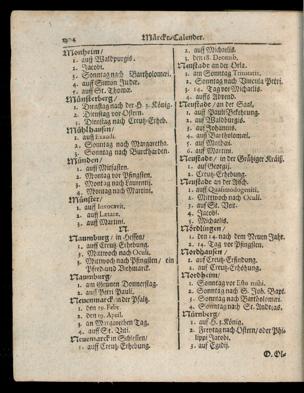 Märckt-Calender.
Monheim/
1. auff Waldpurgis.
2. Jacobi.
3. Sonntag nach Bartholomei.
4. auff Simon Judæ.
5. auff St. Thomæ.
Münsterberg/
1. Dienstag nach der H. 3. König.
2. Dienstag vor Ostern.
3. Dienstag nach Creutz-Erheb.
Mühlhausen/
1. auff Exaudi.
2. Sonntag nach Margaretha.
3. Sonntag nach Burckharden.
Münden/
1. auff Mitfasten.
2. Montag vor Pfingsten.
3. Montag nach Laurentij.
4. Montag nach Martini.
Münster/
1. auff Invocavit.
2. auff Lætare.
3. auff Martini.
N.
Naumburg/ in Hessen/
1. auff Creutz-Erhebung.
2. Mittwoch nach Oculi.
3. Mittwoch nach Pfingsten/ ein
Pferd-und Viehmarck.
Naumburg/
1. am Grünen Donnerstag.
2. auff Petri Pauli.
Neuenmarck in der Pfaltz.
1. den 19. Febr.
2. den 19. April.
3. an Margarethen Tag.
4. auff St. Viti.
Neuenmarck in Schlesien/
1. auff Creutz-Erhebung.
2. auff Michaelis.
3. den 18. Decemb.
Neustadt an der Orla.
1. am Sonntag Trinitatis.
2. Sonntag nach Vincula Petri.
3. 14. Tag vor Michaelis.
4. auff 2. Advent.
Neustadt/ an der Saal,
1. auff Pauli Bekehrung.
2. auff Waldpurgis.
3. auff Johannis.
4. auff Bartholomei.
5. auff Mathæi.
6. auff Martini.
Neustadt/ in der Gräitzer Kräiß.
1. auff Georgii.
2. Creutz-Erhebung.
Neustadt an der Aisch.
1. auff Quasimodogeniti.
2. Mittwoch nach Oculi.
3. auff St. Veit.
4. Jacobi.
5. Michaelis.
Nördlingen/
1. den 14. nach dem Neuen Jahr.
2. 14. Tag vor Pfingsten.
Nordhausen/
1. auff Creutz-Erfindung.
2. auff Creutz-Erhöhung.
Northeim/
1. Sonntag vor Esto mihi.
2. Sonntag nach S. Joh. Bapt.
3. Sonntag nach Bartholomei.
4. Sonntag nach St. Andreas.
Nürnberg/
1. auff H. 3. König.
2. Freytag nach Ostern/ oder Phi-
lippi Jacobi.
3. auff Egidij.